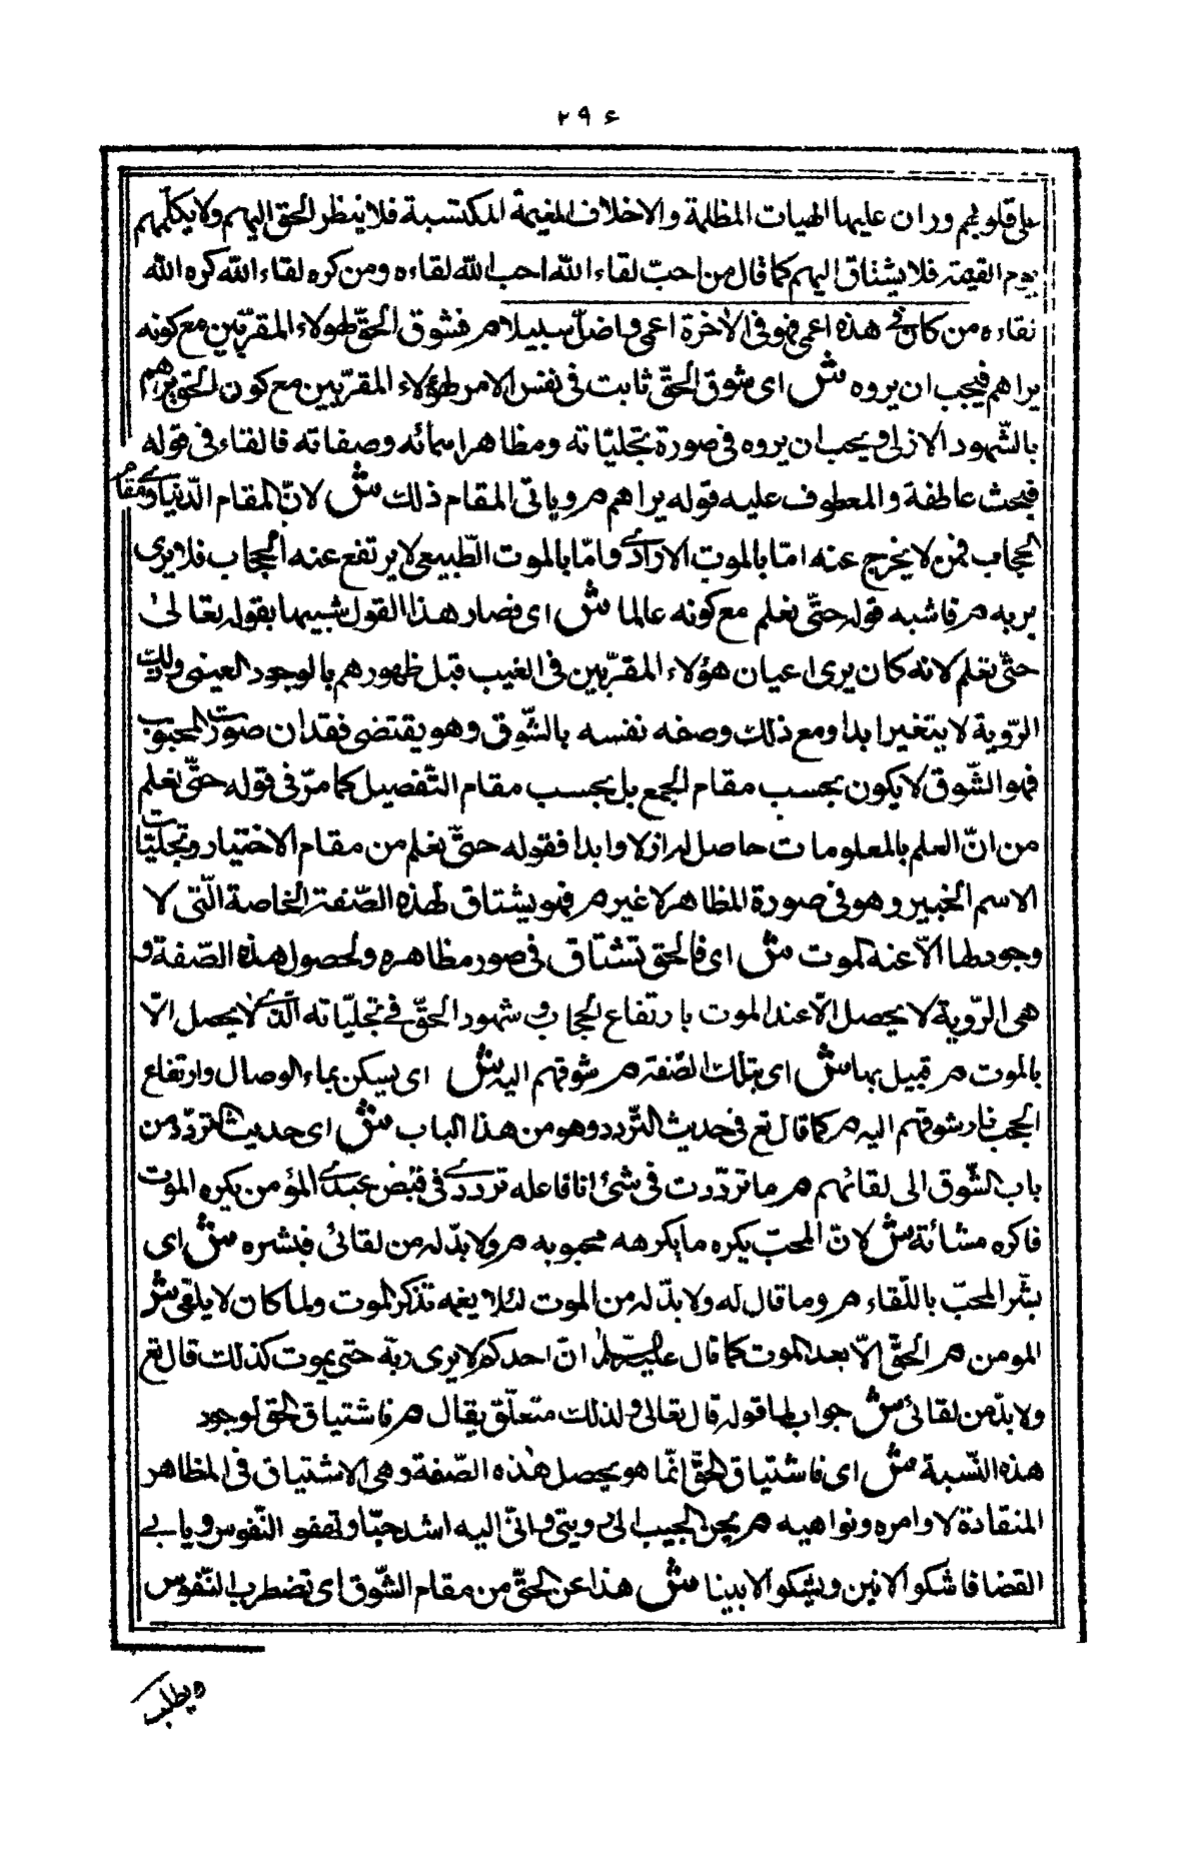 ۲۹۶
على قلوبهم وران عليها الهيات المظلمة والاخلاف المغيمة المكتسبة فلا ينظر الحق اليهم ولا يكلّمهم
يوم القيمة فلا يشتاق اليهم كما قال من احبّ لقاء الله احب الله لقاءه ومن كره لقاء الله كره الله
لقاءه من كان فى هذه اعمى فهو فى الاخرة اعمى واضلّ سبيلا م فشوق الحقّ لهولاء المقرّبين مع كونه
يراهم فيحب ان يروه ش اى شوق الحقّ ثابت فى نفس الامر لهؤلاء المقرّبين مع كون الحق يراهم
بالشّهود الازلى ويحب ان يروه فى صورة تجلّياته ومظاهر اسمائه وصفاته فالفاء فى قوله
فيحث عاطفة والمعطوف عليه قوله يراهم م ويابى المقام ذلك ش لانّ المقام الدّنياوى مقام
الحجاب فمن لا يخرج عنه امّا بالموت الارادى وامّا بالموت الطّبيعى لا يرتفع عنه الحجاب فلا يرى
بربه م فاشبه قوله حتّى نعلم مع كونه عالما ش اى فصار هذا القول شبيها بقوله تعالىٰ
حتّى نعلم لانه كان يرى اعيان هؤلاء المقرّبين فى الغيب قبل ظهورهم بالوجود العينى وتلك
الرّوية لا يتغير ابدا ومع ذلك وصفه نفسه بالشّوق وهو يقتضى فقدان صورت المحبوب
فهو الشّوق لا يكون بحسب مقام الجمع بل بحسب مقام التّفصيل كما مرّ فى قوله حتّى نعلم
من انّ العلم بالمعلومات حاصل له ازلا وابدا فقوله حتّى نعلم من مقام الاختيار وتجلّيات
الاسم الخبير وهو فى صورة المظاهر لا غير م فهو يشتاق لهذه الصّفة الخاصة الّتى لا
وجود لها الّا عند الموت ش اى فالحق تشتاق فى صور مظاهره ولحصول هذه الصّفة و
هى الرّوية لا يحصل الّا عند الموت بارتفاع الحجاب وشهود الحقّ فى تجلّياته الّذى لا يحصل الّا
بالموت م فيبل بها ش اى بتلك الصّفة م شوقهم اليه ش اى يسكن بماء الوصال وارتفاع
الحجب نار شوقهم اليه م كما قال تع فى حديث التّردد وهو من هذا الباب ش اى حديث التردّد من
باب الشّوق الى لقائهم م ما تردّدت فى شئ انا فاعله تردّدى فى قبض عبدى المؤمن يكره الموت
فاكره مسائة ش لانّ المحبّ يكره ما يكرهه محبوبه م ولا بدّ له من لقائى فبشره ش اى
بشّر المحبّ باللّقاء م وما قال له ولا بدّ له من الموت لئلا يغمه تذكّر الموت ولما كان لا يلقى ش
المومن م الحقّ الّا بعد الموت كما قال عليه السّلام انّ احدكم لا يرى ربّه حتى يموت كذلك قال تع
ولا بدّ من لقائى ش جواب لما قوله قال تعالى ولذلك متعلّق بقال م فاشتياق الحق لوجود
هذه النّسبة ش اى فاشتياق الحقّ انّما هو يحصل هذه الصّفة وهى الاشتياق فى المظاهر
المنقادة لاوامره ونواهيه م يحن الحبيب الى رويتى وانّى اليه اشد حبّا وتهفو النّفوس ويابى
القضا فاشكو الانين ويشكو الابينا ش هذا عن الحقّ من مقام الشّوق اى تضطرب النّفوس
ويطلب